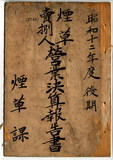 昭和十二年度後期
煙草
賣捌人營業決算報告書
煙草課